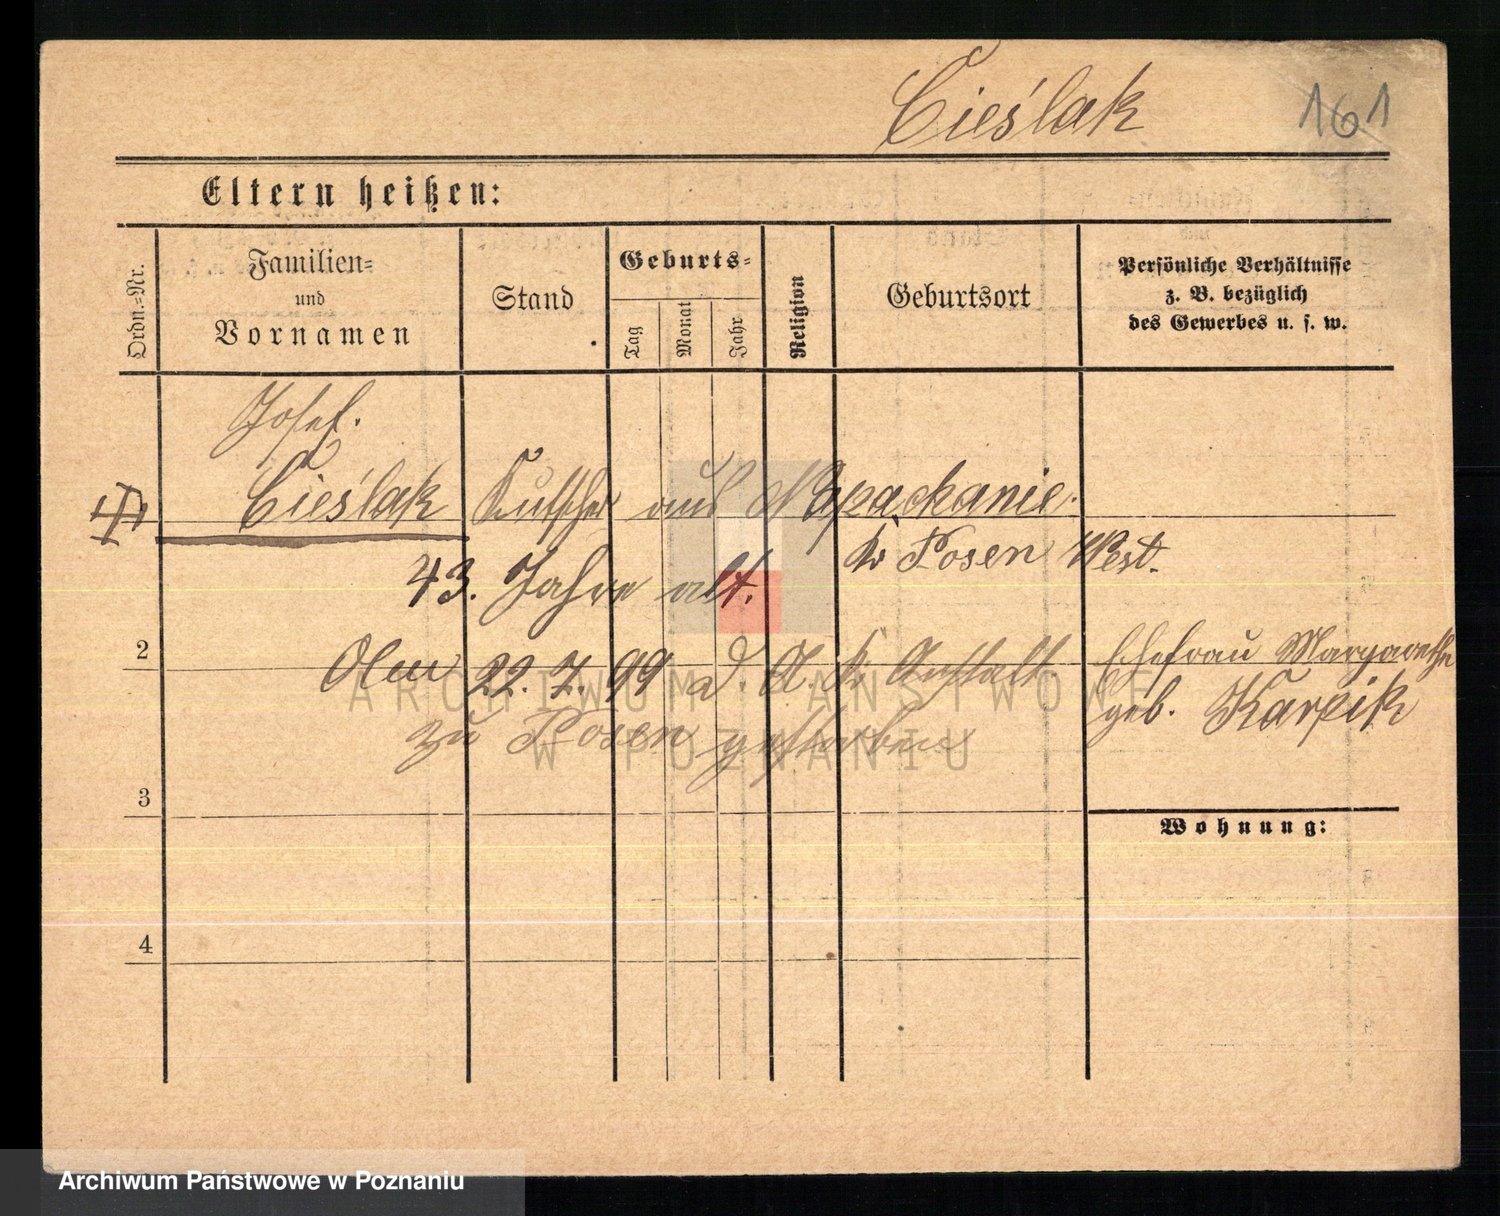 Cieślak
161
Eltern heißen:
Ordn.-Nr.
Familien-
und
Vornamen
Stand
Geburts-
Tag
Monat
Jahr
Religion
Geburtsort
Persönliche Verhältnisse
z. B. bezüglich
des Gewerbes u. s. w.
Josef.
Cieślak Kutscher aus Napachanie.
Kr Posen West.
43. Jahre alt.
2
22. 7. 99 d. Anstalt.
Ehefrau Margarethe
geb. Karpik
zu Posen gestorben
3
Wohnung:
4
ARCHIWUM PAŃSTWOWE
W POZNANIU
Archiwum Państwowe w Poznaniu